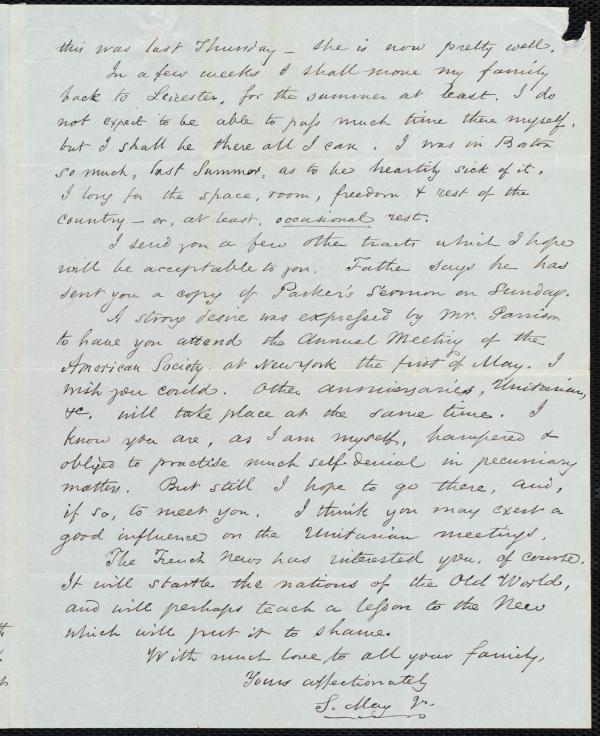 this was last Thursday – she is now pretty well.
In a few weeks I shall move my family
back to Leicester, for the summer at least. I do
not expect to be able to pass much time there myself,
but I shall be there all I can. I was in Boston
so much, last Summer, as to be heartily sick of it.
I long for the space, room, freedom & rest of the
country – or, at least, occasional rest.
I send you a few other tracts which I hope
will be acceptable to you. Father says he has
sent you a copy of Parker's Sermon on Sunday.
A strong desire was expressed by Mr. Garrison
to have you attend the Annual Meeting of the
American Society, at New York the first of May. I
wish you could. Other anniversaries, Unitarian,
&c. will take place at the same time. I
know you are, as I am myself, hampered &
obliged to practise much self-denial in pecuniary
matters. But still I hope to go there, and,
if so, to meet you. I think you may exert a
good influence on the Unitarian meetings.
The French News has interested you, of course.
It will startle the nations of the Old World,
and will perhaps teach a lesson to the New
which will put it to shame.
With much love, to all your family,
Yours affectionately
S. May Jr.